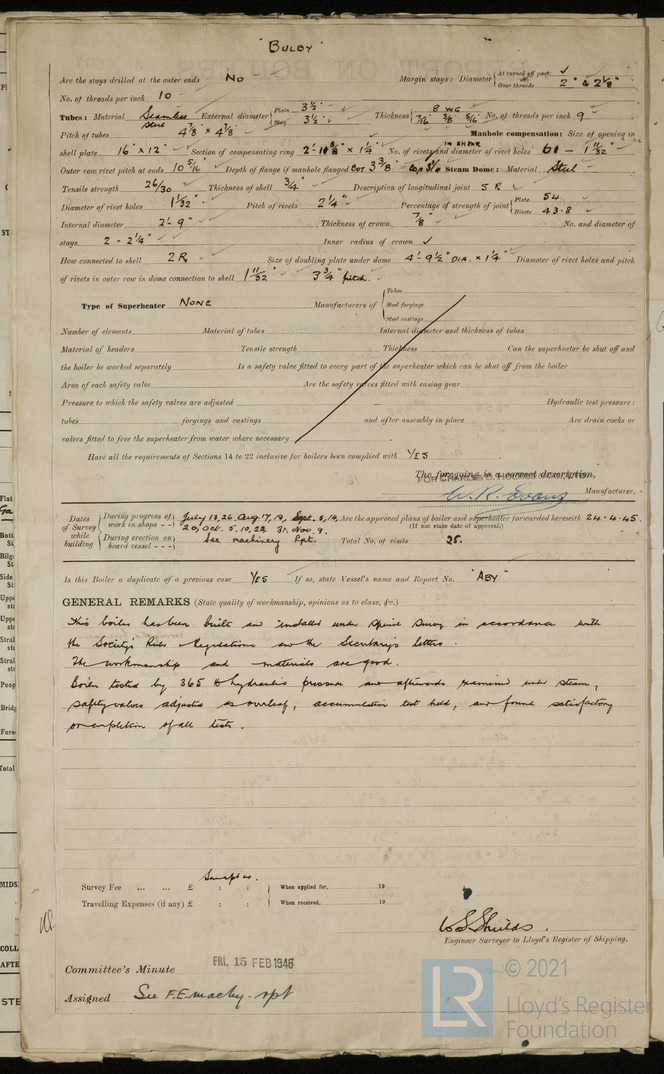 "BULBY"
Are the stays drilled at the outer ends No Margin stays: Diameter { At turned off part, ✓ Over threads 2" & 2 1/8"
No. of threads per inch 10
Tubes: Material Seamless Steel External diameter { Plain 3 1/2" Stay 3 1/2" Thickness { 8 WG 7/16 3/8 5/16 No. of threads per inch 9
Pitch of tubes 4 7/8" × 4 7/8" Manhole compensation: Size of opening in
shell plate 16" × 12" Section of compensating ring × 1 1/4" No. of rivets and diameter of rivet holes 60 - 1 11/32"
Outer row rivet pitch at ends 10 5/16" Depth of flange if manhole flanged 3 3/8" Steam Dome: Material Steel
Tensile strength 26/30 Thickness of shell 3/4" Description of longitudinal joint S R
Diameter of rivet holes 1 1/32" Pitch of rivets 2 1/4" Percentage of strength of joint { Plate 54 Rivets 43.8
Internal diameter 2'- 9" Thickness of crown 7/8" No. and diameter of
stays 2 - 2 1/4" Inner radius of crown ✓
How connected to shell 2 R Size of doubling plate under dome 4'- 9 1/2" DIA. × 1 1/4" Diameter of rivet holes and pitch
of rivets in outer row in dome connection to shell 1 11/32" 3 3/4" pitch.
Type of Superheater NONE Manufacturers of { Tubes Steel forgings Steel castings
Number of elements Material of tubes Internal diameter and thickness of tubes
Material of headers Tensile strength Thickness Can the superheater be shut off and
the boiler be worked separately Is a safety valve fitted to every part of the superheater which can be shut off from the boiler
Area of each safety valve Are the safety valves fitted with easing gear
Pressure to which the safety valves are adjusted Hydraulic test pressure:
tubes forgings and castings and after assembly in place Are drain cocks or
valves fitted to free the superheater from water where necessary
Have all the requirements of Sections 14 to 22 inclusive for boilers been complied with YES
The foregoing is a correct description,
W. R. Evans Manufacturer.
Dates of Survey while building { During progress of work in shops - - } July 13, 26. Aug. 7, 19, Sept. 5, 14, 20, Oct. 5, 10, 22, 31. Nov. 9. Are the approved plans of boiler and superheater forwarded herewith 24-4-45.
(If not state date of approval.)
{ During erection on board vessel - - - } See machinery Rpt. Total No. of visits 25.
Is this Boiler a duplicate of a previous case YES If so, state Vessel's name and Report No. "ABY"
GENERAL REMARKS (State quality of workmanship, opinions as to class, &c.)
This boiler has been built and installed under special survey in accordance with
the Society's Rules & Regulations and the Secretary's letters.
The workmanship and materials are good.
Boiler tested by 365 lb hydraulic pressure and afterwards examined under steam,
safety valves adjusted as overleaf, accumulation test held, and found satisfactory
on completion of all tests.
Survey Fee ... ... £ : : When applied for, 19
Travelling Expenses (if any) £ : : When received, 19
W S Shields.
Engineer Surveyor to Lloyd's Register of Shipping.
Committee's Minute FRI. 15 FEB 1946
Assigned See F.E. machy. rpt
LR © 2021
Lloyd's Register
Foundation